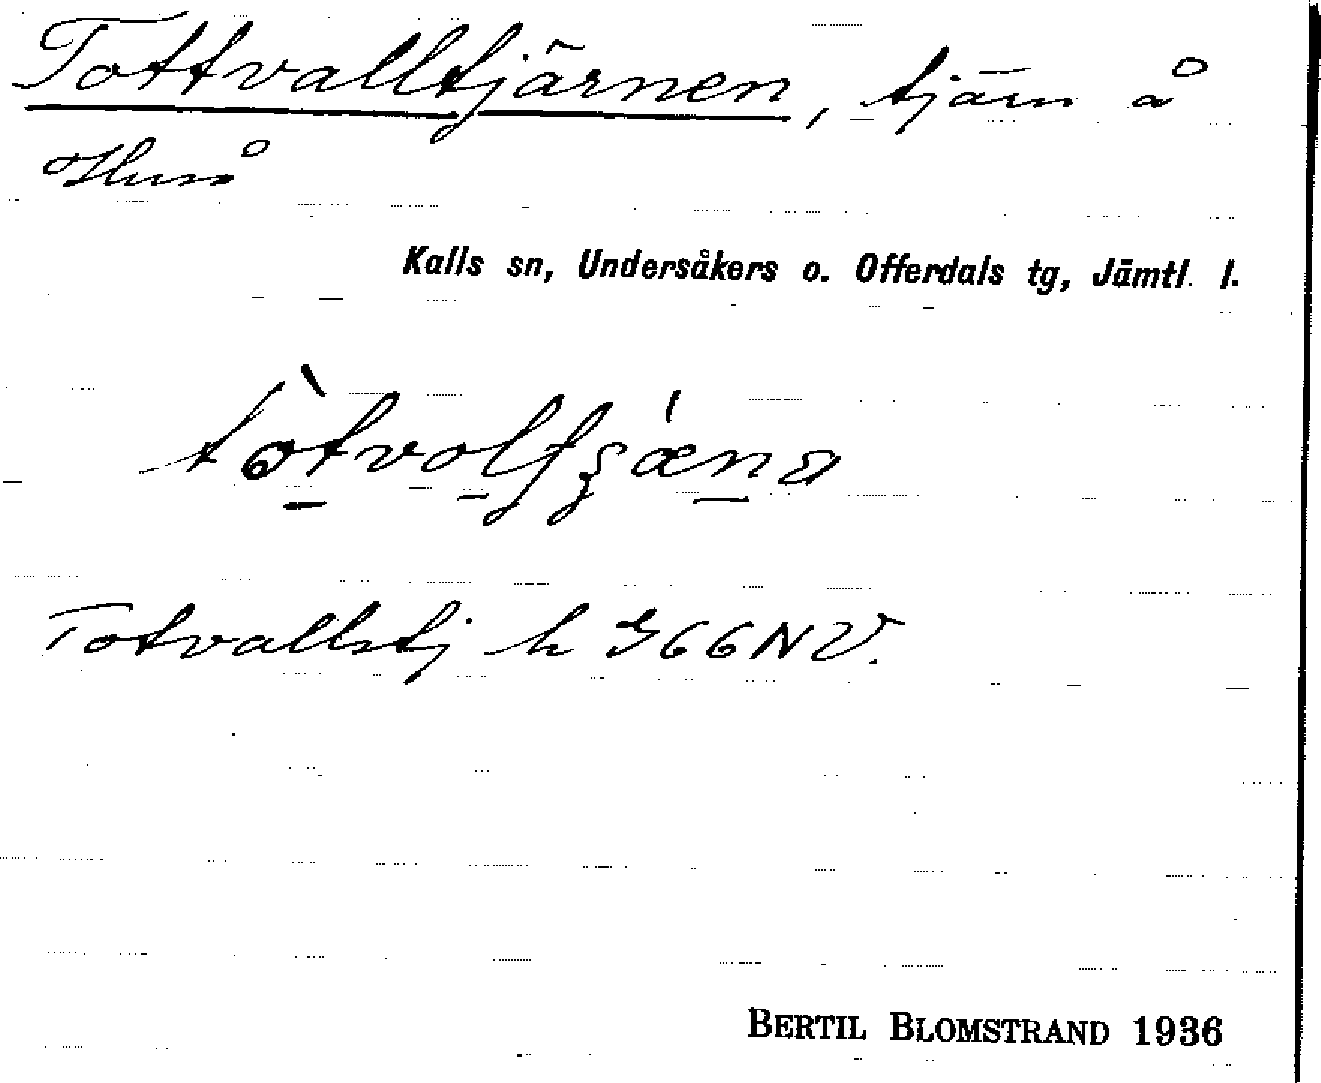 Tottvalltjärnen, tjärn å
Huså
Kalls sn, Undersåkers o. Offerdals tg, Jämtl. l.
Totvallstj k G66NV.
BERTIL BLOMSTRAND 1936